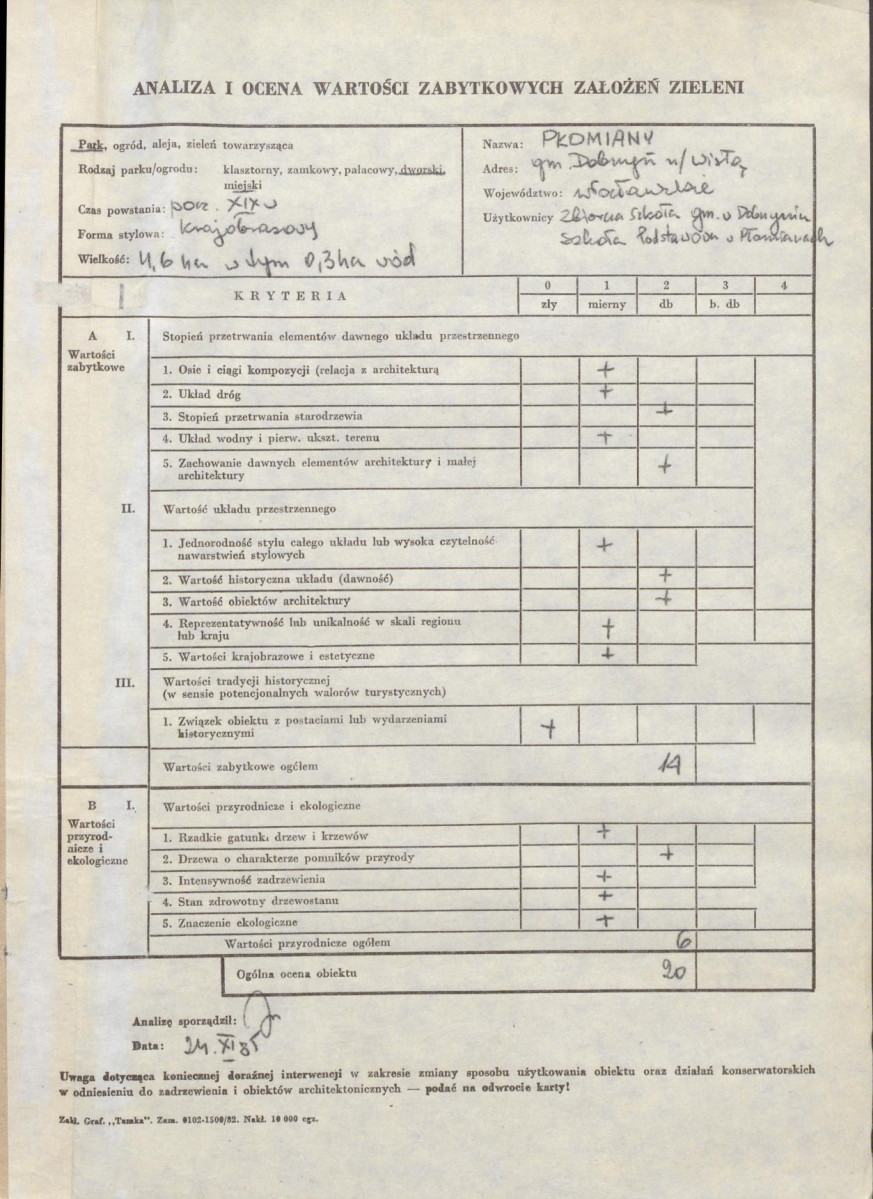 ANALIZA I OCENA WARTOŚCI ZABYTKOWYCH ZAŁOŻEŃ ZIELENI
Park, ogród, aleja, zieleń towarzysząca
Rodzaj parku/ogrodu: klasztorny, zamkowy, pałacowy, dworski,
miejski
Czas powstania: pocz. XIX w
Forma stylowa: krajobrazowy
Wielkość: 4,6 ha w tym 0,3 ha wód
Nazwa: PŁOMIANY
Adres: gm. Dobrzyń n/Wisłą
Województwo: włocławskie
Użytkownicy Zbiorcza Szkoła gm. w Dobrzyniu
Szkoła Podstawowa w Płomianach
KRYTERIA
0 1 2 3 4
zły mierny db b. db
A I. Stopień przetrwania elementów dawnego układu przestrzennego
Wartości
zabytkowe
1. Osie i ciągi kompozycji (relacja z architekturą +
2. Układ dróg +
3. Stopień przetrwania starodrzewia +
4. Układ wodny i pierw. ukszt. terenu +
5. Zachowanie dawnych elementów architektury i małej
architektury +
II. Wartość układu przestrzennego
1. Jednorodność stylu całego układu lub wysoka czytelność
nawarstwień stylowych +
2. Wartość historyczna układu (dawność) +
3. Wartość obiektów architektury +
4. Reprezentatywność lub unikalność w skali regionu
lub kraju +
5. Wartości krajobrazowe i estetyczne +
III. Wartości tradycji historycznej
(w sensie potencjonalnych walorów turystycznych)
1. Związek obiektu z postaciami lub wydarzeniami
historycznymi +
Wartości zabytkowe ogółem 14
B I. Wartości przyrodnicze i ekologiczne
Wartości
przyrod-
nicze i
ekologiczne
1. Rzadkie gatunki drzew i krzewów +
2. Drzewa o charakterze pomników przyrody +
3. Intensywność zadrzewienia +
4. Stan zdrowotny drzewostanu +
5. Znaczenie ekologiczne +
Wartości przyrodnicze ogółem 6
Ogólna ocena obiektu 20
Analizę sporządził:
Data: 24. XI 85
Uwaga dotycząca koniecznej doraźnej interwencji w zakresie zmiany sposobu użytkowania obiektu oraz działań konserwatorskich
w odniesieniu do zadrzewienia i obiektów architektonicznych — podać na odwrocie karty!
Zakł. Graf. „Tamka". Zam. 0102-1500/82. Nakł. 10 000 egz.